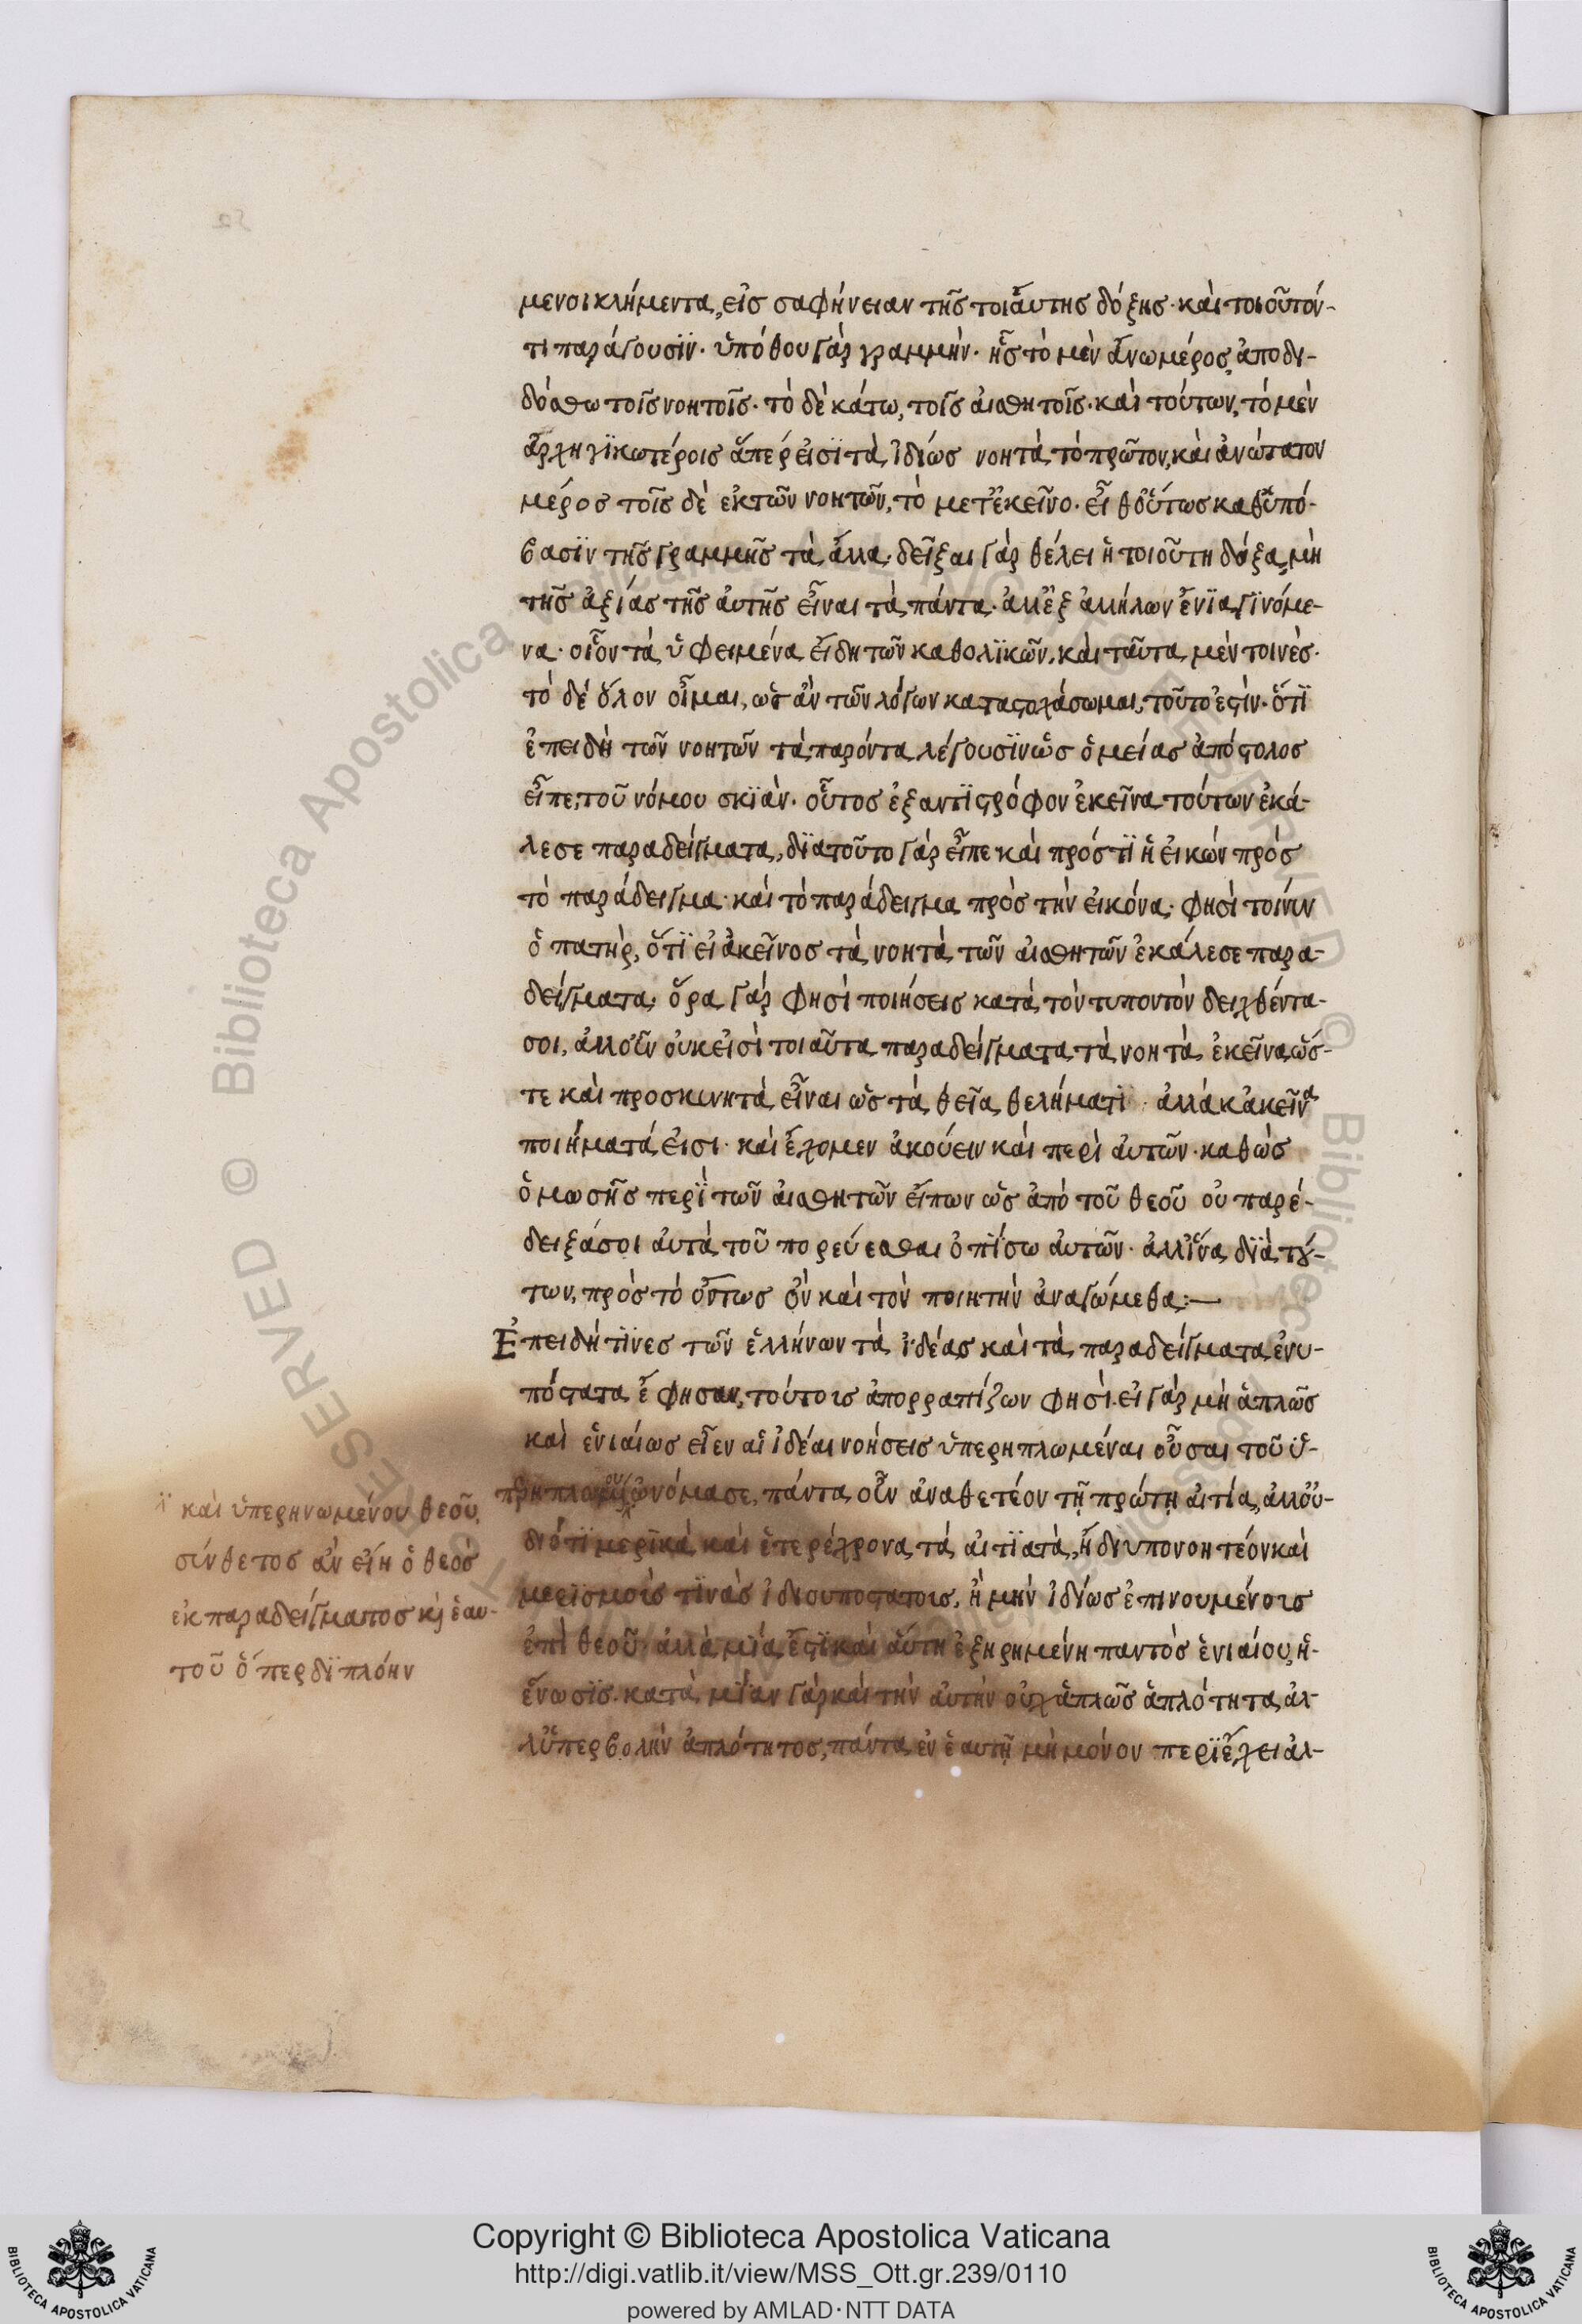 μενοι κλήμεντα, εἰσ σαφήνειαν τῆσ τοιἄυτησ δόξησ· καὶ τοιοῦτόν-
τι παράγουσϊν· ὑπόθου γὰρ γραμμὴν· ἧσ τὸ μὲν ἄνω μέροσ, ἀποδι-
δόσθω τοῖσ νοητοῖσ· τὸ δὲ κάτω, τοῖσ ἀισθητοῖσ· καὶ τούτων, τὸ μὲν
ἀρχηγϊκωτέροισ ἅπερ ἐισϊ τὰ ἰδίωσ νοητὰ, τὸ πρῶτον, καὶ ἀνώτατον
μέροσ τοῖσ δὲ ἐκ τῶν νοητῶν, τὸ μετ ἐκεῖνο· εἶθ οὕτωσ καθ ὑπό-
βασϊν τῆσ γραμμῆσ τὰ ἄλλα· δεῖξαι γὰρ θέλει ἡ τοιούτη δόξα, μὴ
τῆσ ἀξίασ τῆσ ἀυτῆσ εἶναι τὰ πάντα· ἀλλ ἐξ ἀλλήλων ἔνϊα γϊνόμε-
να· οἷον τὰ ὑφειμένα εἴδη τῶν καθολϊκῶν, καὶ ταῦτα μέν τοινὲσ·
τὸ δὲ ὅλον οἶμαι, ὡσ ἀν τῶν λόγων καταστοχάσωμαι, τοῦτο ἐστὶν· ὅτϊ
ἐπειδὴ τῶν νοητῶν τὰ παρόντα λέγουσϊν ὡσ ὁ μείασ ἀπόστολοσ
εἶπε, τοῦ νόμου σκϊὰν· οὗτοσ ἐξαντϊστρόφον ἐκεῖνα τούτων ἐκά-
λεσε παραδείγματα, δϊατοῦτο γὰρ εἶπε καὶ πρόστϊ ἡ ἐικὼν πρὸσ
τὸ παράδειγμα· καὶ τὸ παράδειγμα πρὸσ τὴν ἐικόνα· φησὶ τοίνυν
ὁ πατὴρ, ὅτϊ εἰ ἀκεῖνοσ τὰ νοητὰ τῶν ἀισθητῶν ἐκάλεσε παρα-
δείγματα· ὅρα γάρ φησὶ ποιήσεισ κατὰ τὸν τυπον τὸν δειχθέντα-
σοι, ἀλλ οὖν οὐκ εἰσὶ τοιαῦτα παραδείγματα τὰ νοητὰ ἐκεῖνα, ὥσ-
τε καὶ προσκυνητὰ εἶναι ὡσ τὰ θεῖα θελήματϊ· ἀλλὰ κἀκεῖνα
ποιήματά ἐισι· καὶ ἔχομεν ἀκούειν καὶ περὶ ἀυτῶν· καθὼσ
ὁ μωσῆσ περὶ τῶν ἀισθητῶν εἴπων ὡσ ἀπὸ τοῦ θεοῦ οὐ παρέ-
δειξά σοι ἀυτὰ τοῦ πορεύεσθαι ὀπΐσω ἀυτῶν· ἀλλ ἵνα δϊὰ τȣ́-
των, πρὸσ τὸ ὄντωσ ὂν καὶ τὸν ποιητὴν ἀναγώμεθα:—
Ἐπειδή τϊνεσ τῶν ἑλλήνων τὰ ἰδέασ καὶ τὰ παραδείγματα ἐνυ-
πόστατα ἔφησαν, τούτοισ ἀπορραπίζων φησὶ· εἰ γὰρ μὴ ἁπλῶσ
καὶ ἑνιαίωσ εἶεν αἱ ἰδέαι νοήσεισ ὑπερηπλωμέναι οὖσαι τοῦ ὑ-
ὠνόμασε, πάντα οὖν ἀναθετέον τῇ πρώτῃ ἀιτία, ἀλλ οὐ-
διότϊ μερϊκὰ καὶ ἑτερέχρονα τὰ ἀιτϊατὰ, ἤδι υπονοητέον καὶ
μερϊσμοὶσ τϊνὰσ ἰδιουποστατοισ, ἢ μὴν ἰδίωσ ἐπινουμένοισ
ἐπὶ θεοῦ· ἀλλὰ μία ἐστϊ καὶ ἅυτη ἐξηρημένη παντὸσ ἑνιαίου, ἡ-
ἕνωσϊσ· κατὰ μΐαν γὰρ καὶ τὴν ἀυτὴν οὐχ ἁπλῶσ ἁπλότητα, ἀλ-
λ ὑπερβολὴν ἁπλότητοσ, πάντα ἐν ἑαυτῇ μὴ μόνον περϊέχει ἀλ-
καὶ ὑπερηνωμένου θεοῦ,
σύνθετοσ ἀν εἴη ὁ θεὸσ
ἐκ παραδείγματοσ κὶ ἑαυ-
τοῦ ὅπερ δϊπλόην
Copyright © Biblioteca Apostolica Vaticana
http://digi.vatlib.it/view/MSS_Ott.gr.239/0110
powered by AMLAD·NTT DATA